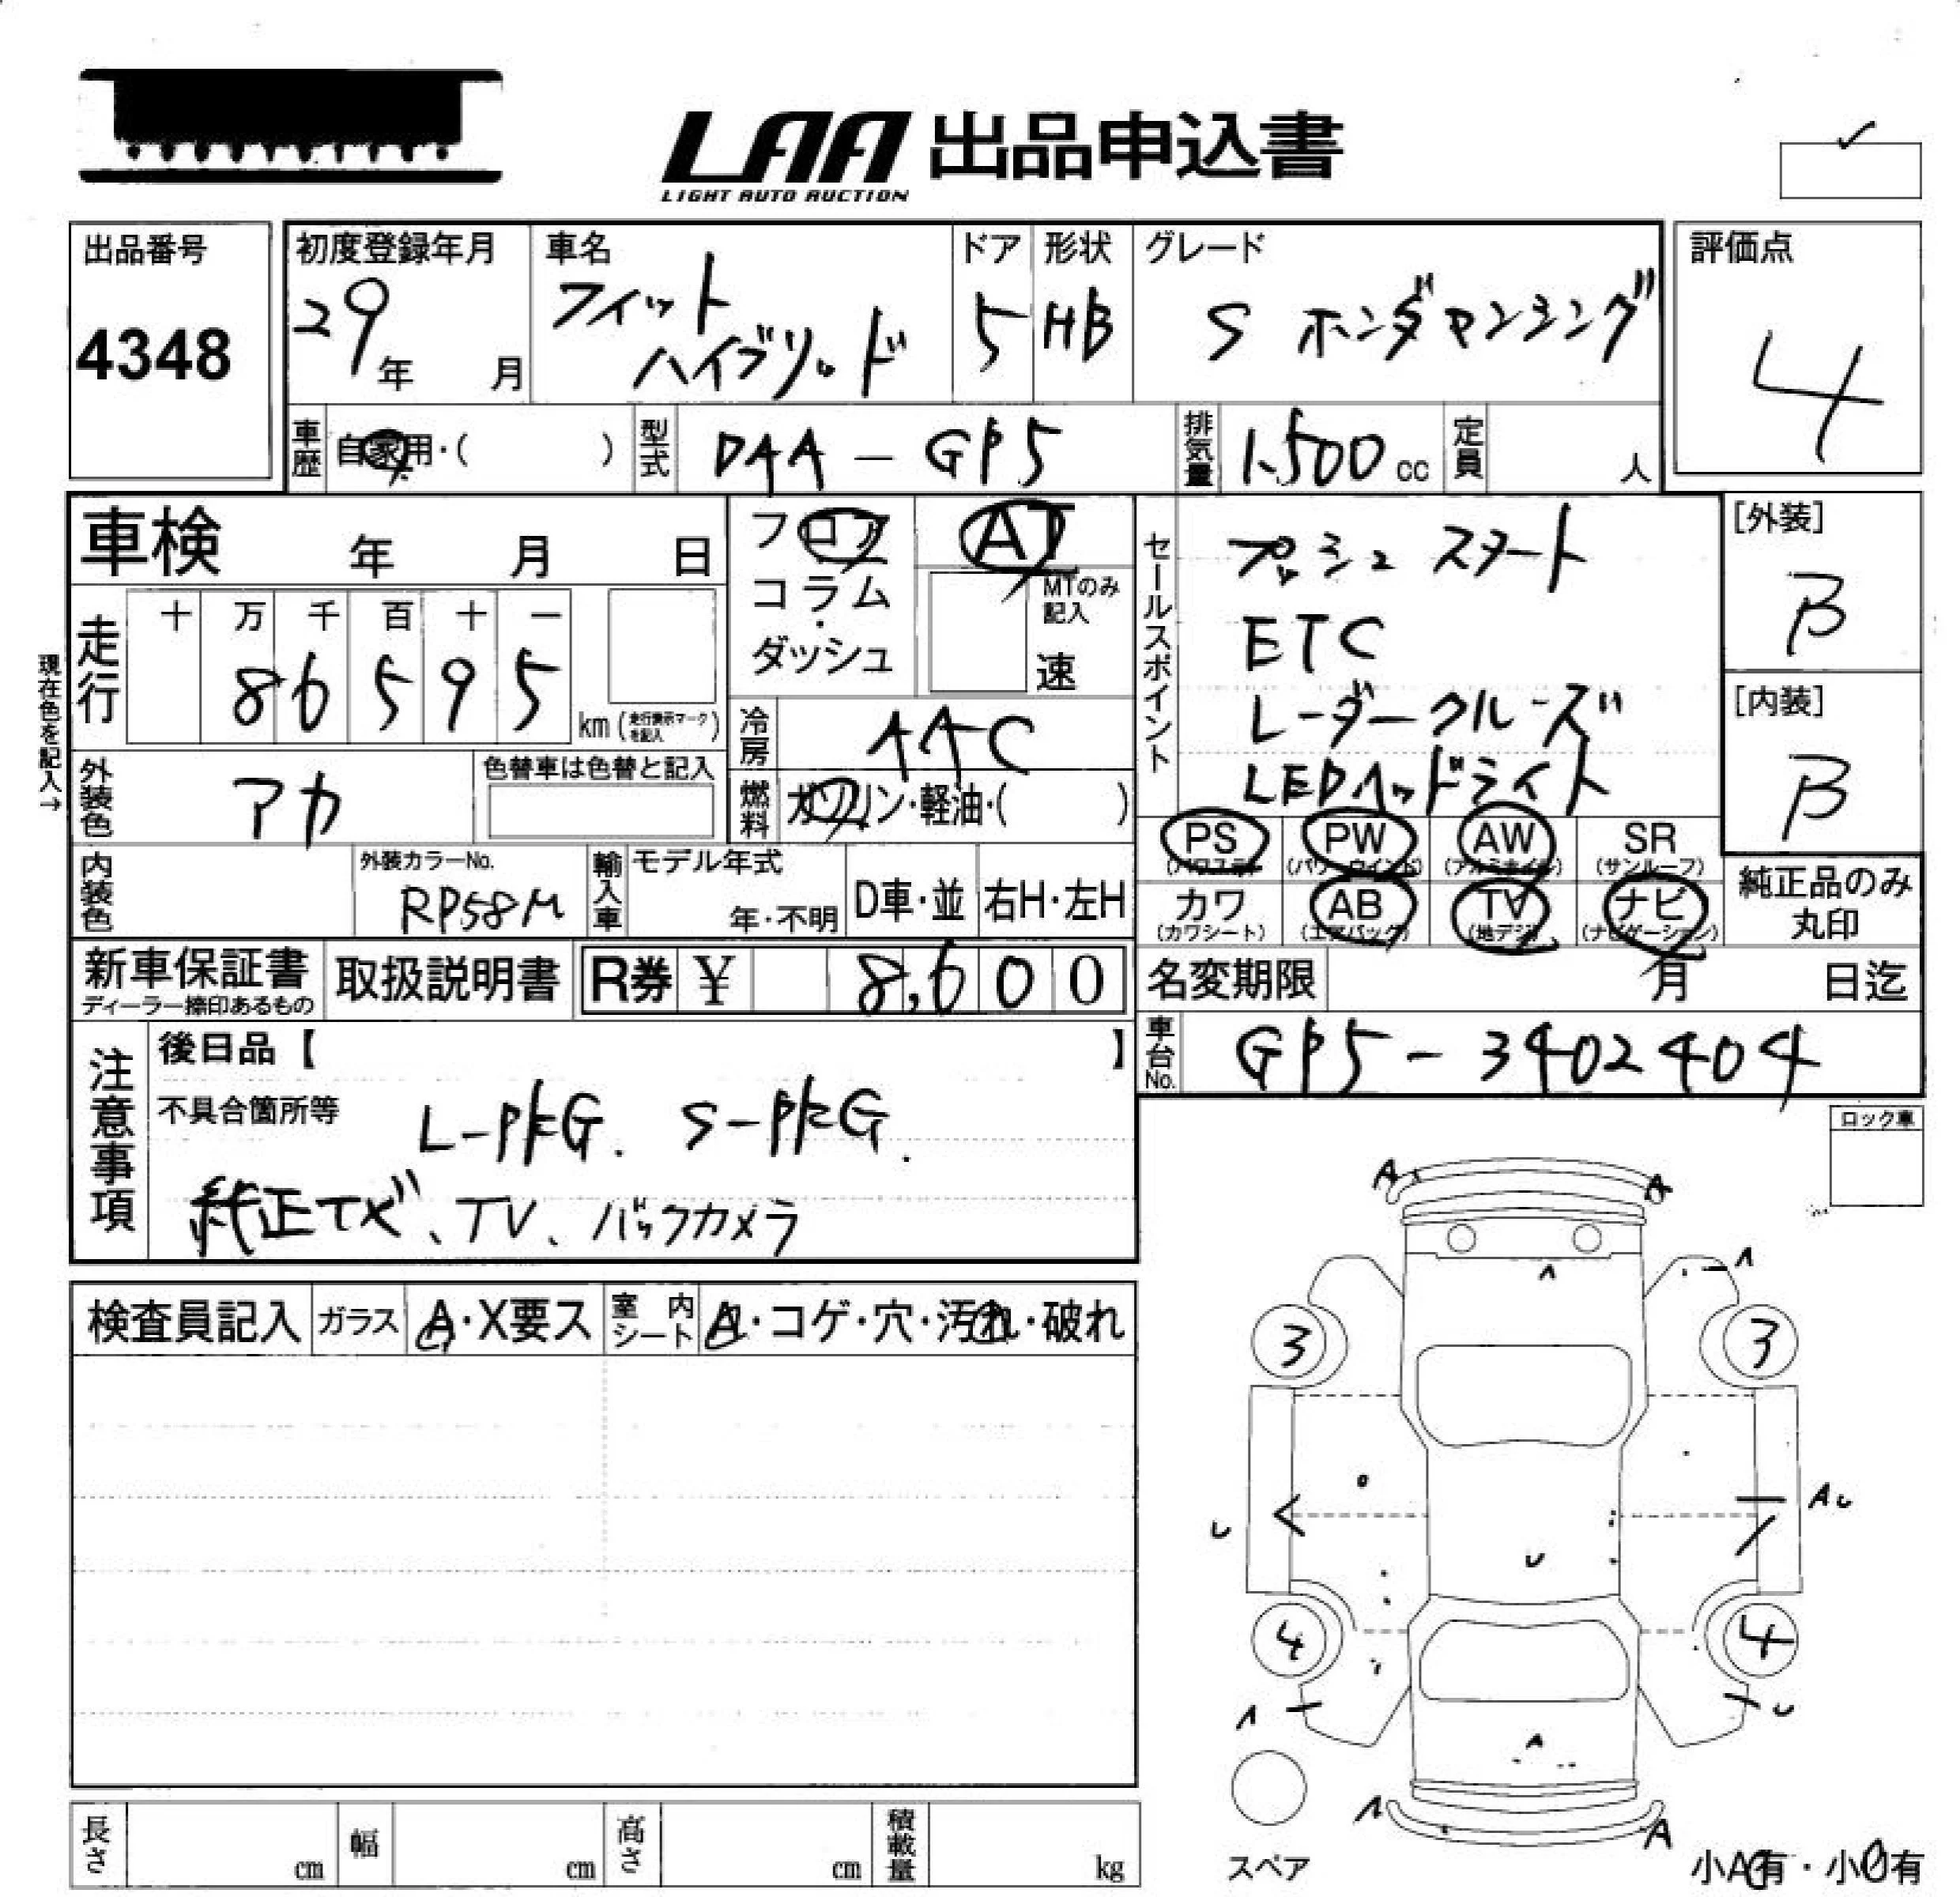 LAA 出品申込書
LIGHT AUTO AUCTION
出品番号
4348
初度登録年月
29年 月
車名
フィット
ハイブリッド
ドア
5
形状
HB
グレード
S ホンダセンシング
評価点
4
車歴
自家用・( )
型式
DAA-GP5
排気量
1.500cc
定員
人
車検 年 月 日
フロア
コラム
・
ダッシュ
AT
MTのみ
記入
速
セールスポイント
プッシュ スタート
ETC
レーダークルーズ
LEDヘッドライト
[外装]
B
[内装]
B
現在色を記入→
走行
十 万 千 百 十 一
8 6 5 9 5
km (走行表示マークを記入)
冷房
AAC
燃料
ガソリン・軽油・( )
外装色
アカ
色替車は色替と記入
内装色
外装カラーNo.
RP58M
輸入車
モデル年式
年・不明
D車・並
右H・左H
PS
(パワステ)
PW
(パワーウインド)
AW
(アルミホイル)
SR
(サンルーフ)
カワ
(カワシート)
AB
(エアバック)
TV
(地デジ)
ナビ
(ナビゲーション)
純正品のみ
丸印
新車保証書
ディーラー捺印あるもの
取扱説明書
R券 ¥ 8,600
名変期限 月 日迄
車台No.
GP5-3402404
注意事項
後日品【 】
不具合箇所等
純正ナビ、TV、バックカメラ
ロック車
検査員記入
ガラス
A・X要ス
室内
シート
・コゲ・穴・汚れ・破れ
A A
A
A
3 3
U
AU
U
4 4
A
U
A
A
A
スペア
小A有・小U有
長さ cm
幅 cm
高さ cm
積載量 kg